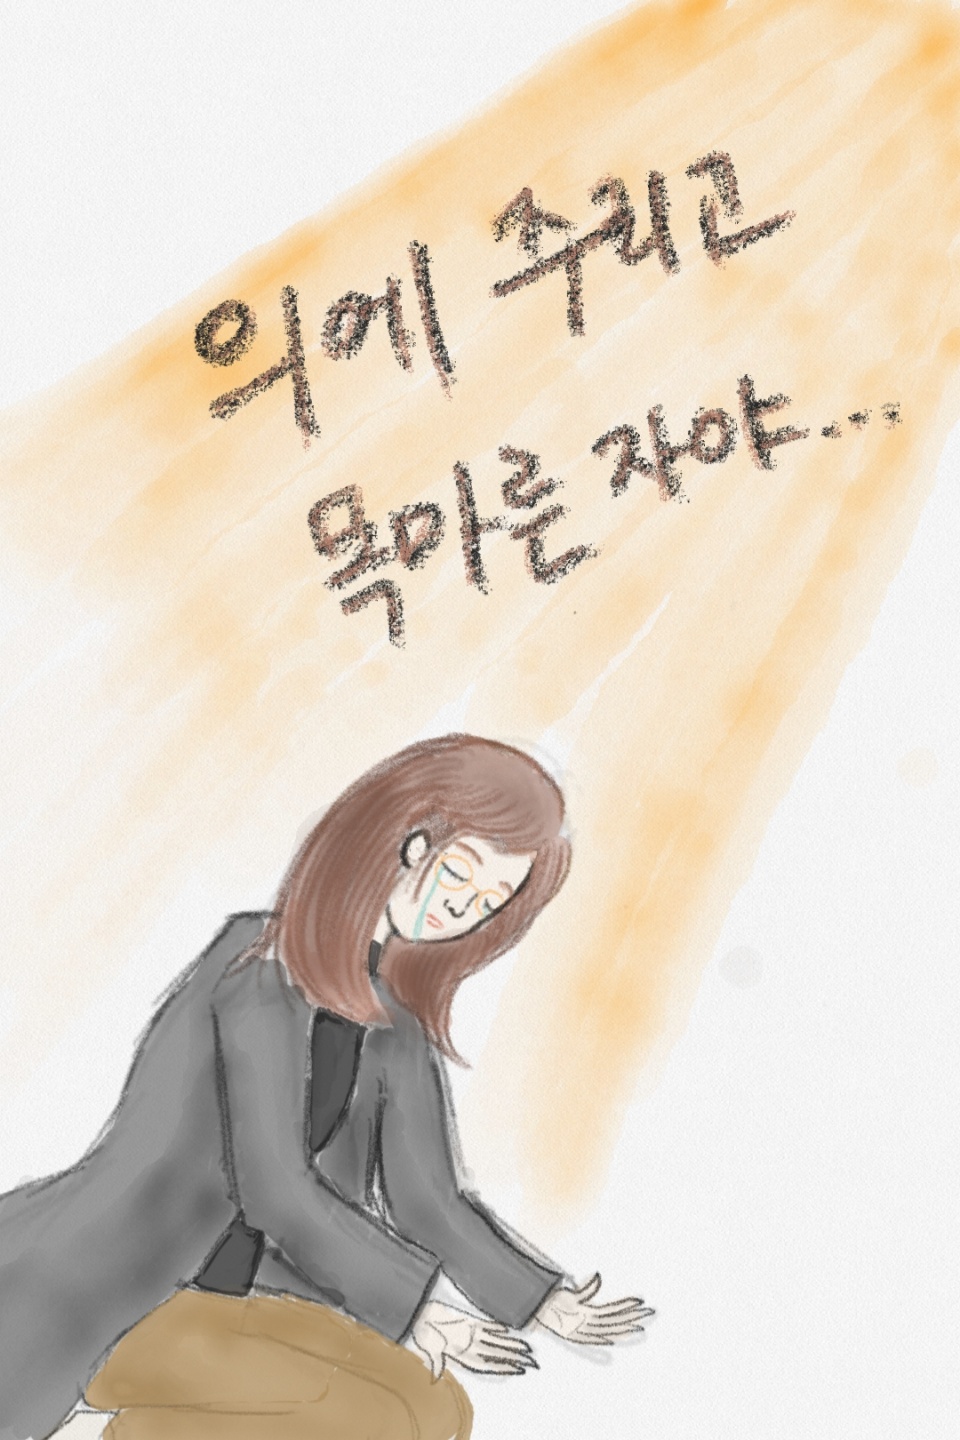 의에 주리고
목마른 자야...